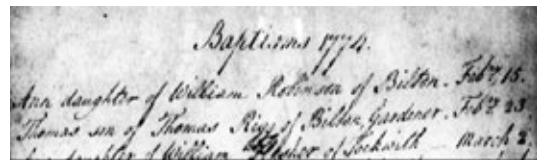 Baptisms 1774.
Ann daughter of William Robinson of Bilton. Feb.ʸ 15.
Thomas son of Thomas Rigg of Bilton, Gardener. Feb.ʸ 23
daughter of William of Tockwith March 2.